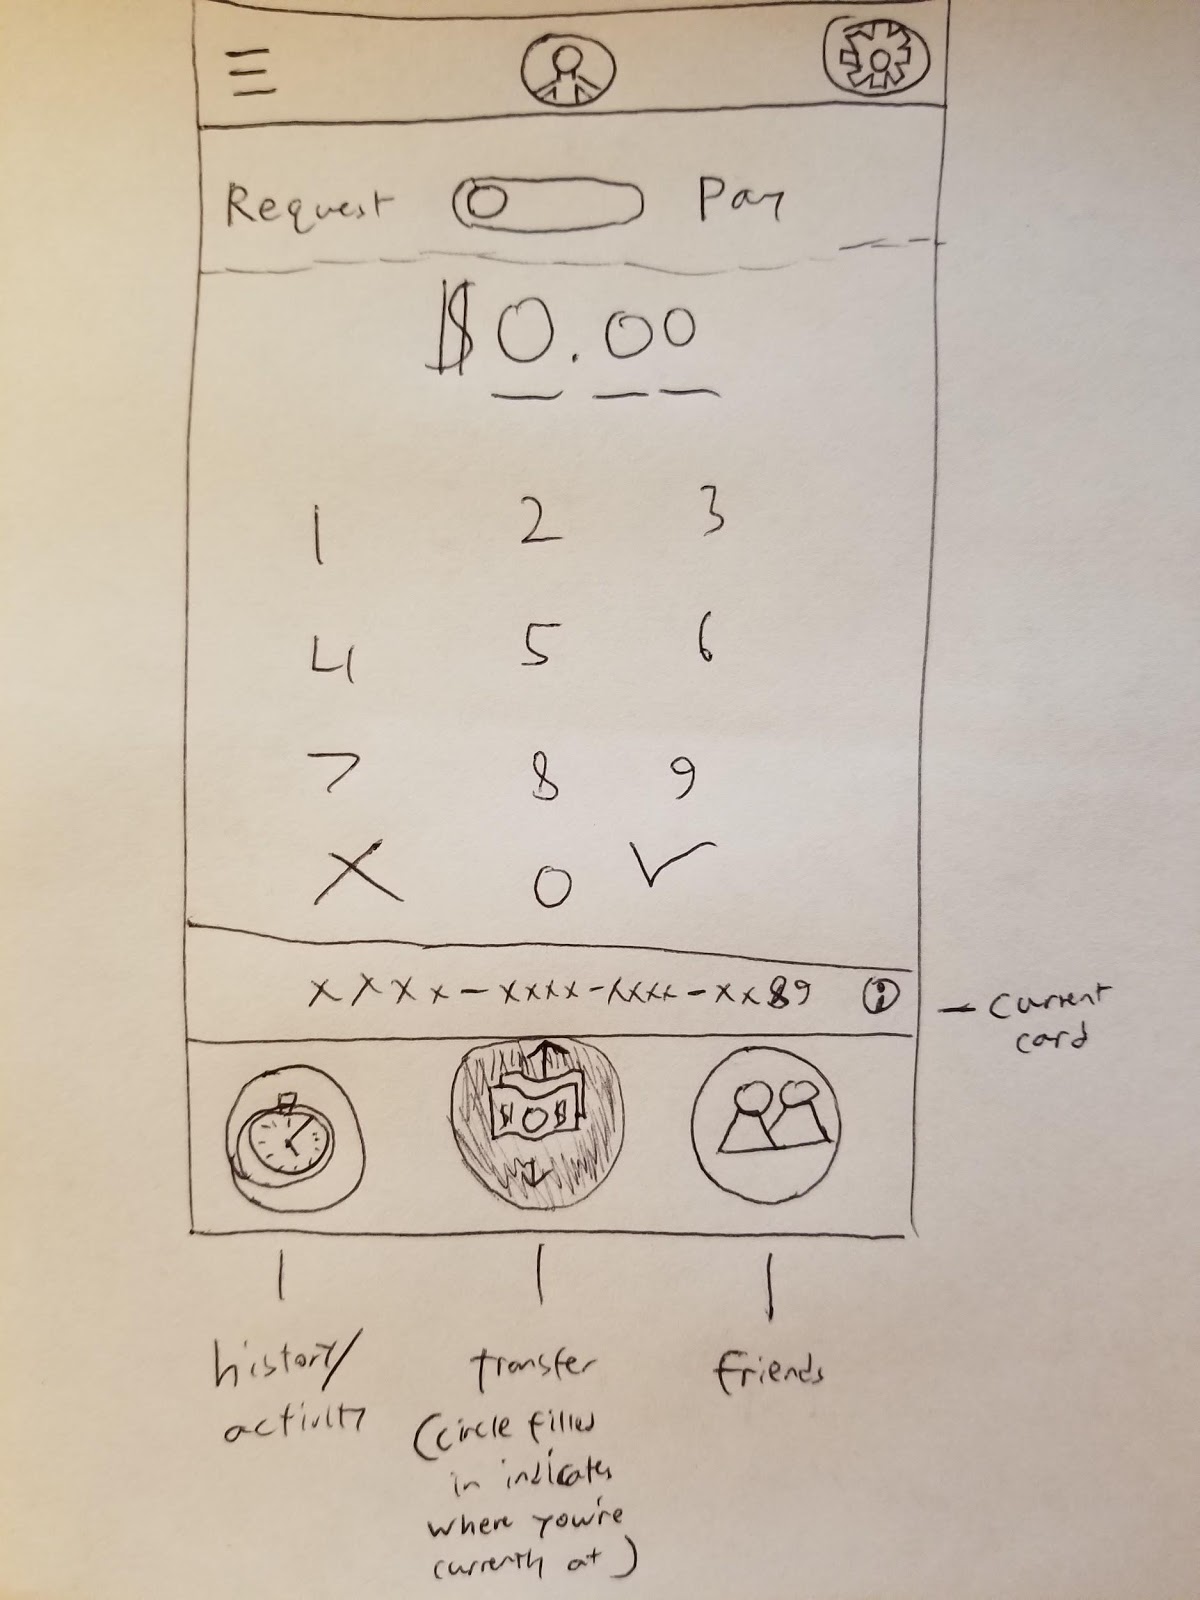 Request Pay
$0.00
1 2 3
4 5 6
7 8 9
X 0 ✓
xxxx-xxxx-xxxx-xx89 i
- current
card
$ 0 $
history/
activity
transfer
(circle filled
in indicates
where you're
currently at)
friends